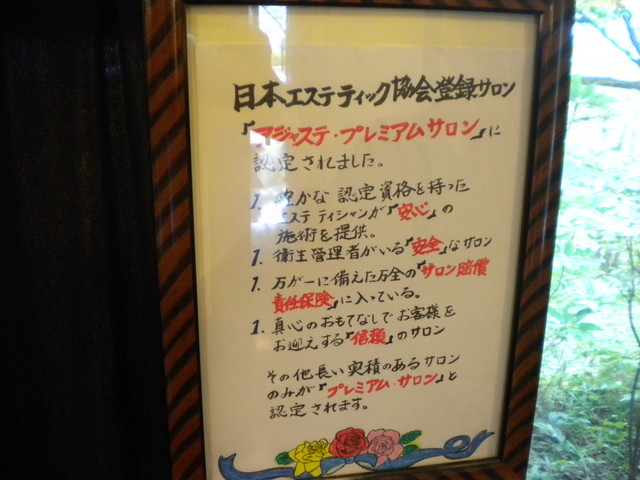 日本エステティック協会登録サロン
『アジャステ・プレミアムサロン』に
認定されました。
1. 確かな認定資格を持った
エステティシャンが『安心』の
施術を提供。
1. 衛生管理者がいる『安全』なサロン
1. 万が一に備えた万全の『サロン賠償
責任保険』に入っている。
1. 真心のおもてなしでお客様を
お迎えする『信頼』のサロン
その他長い実積のあるサロン
のみが『プレミアム・サロン』と
認定されます。